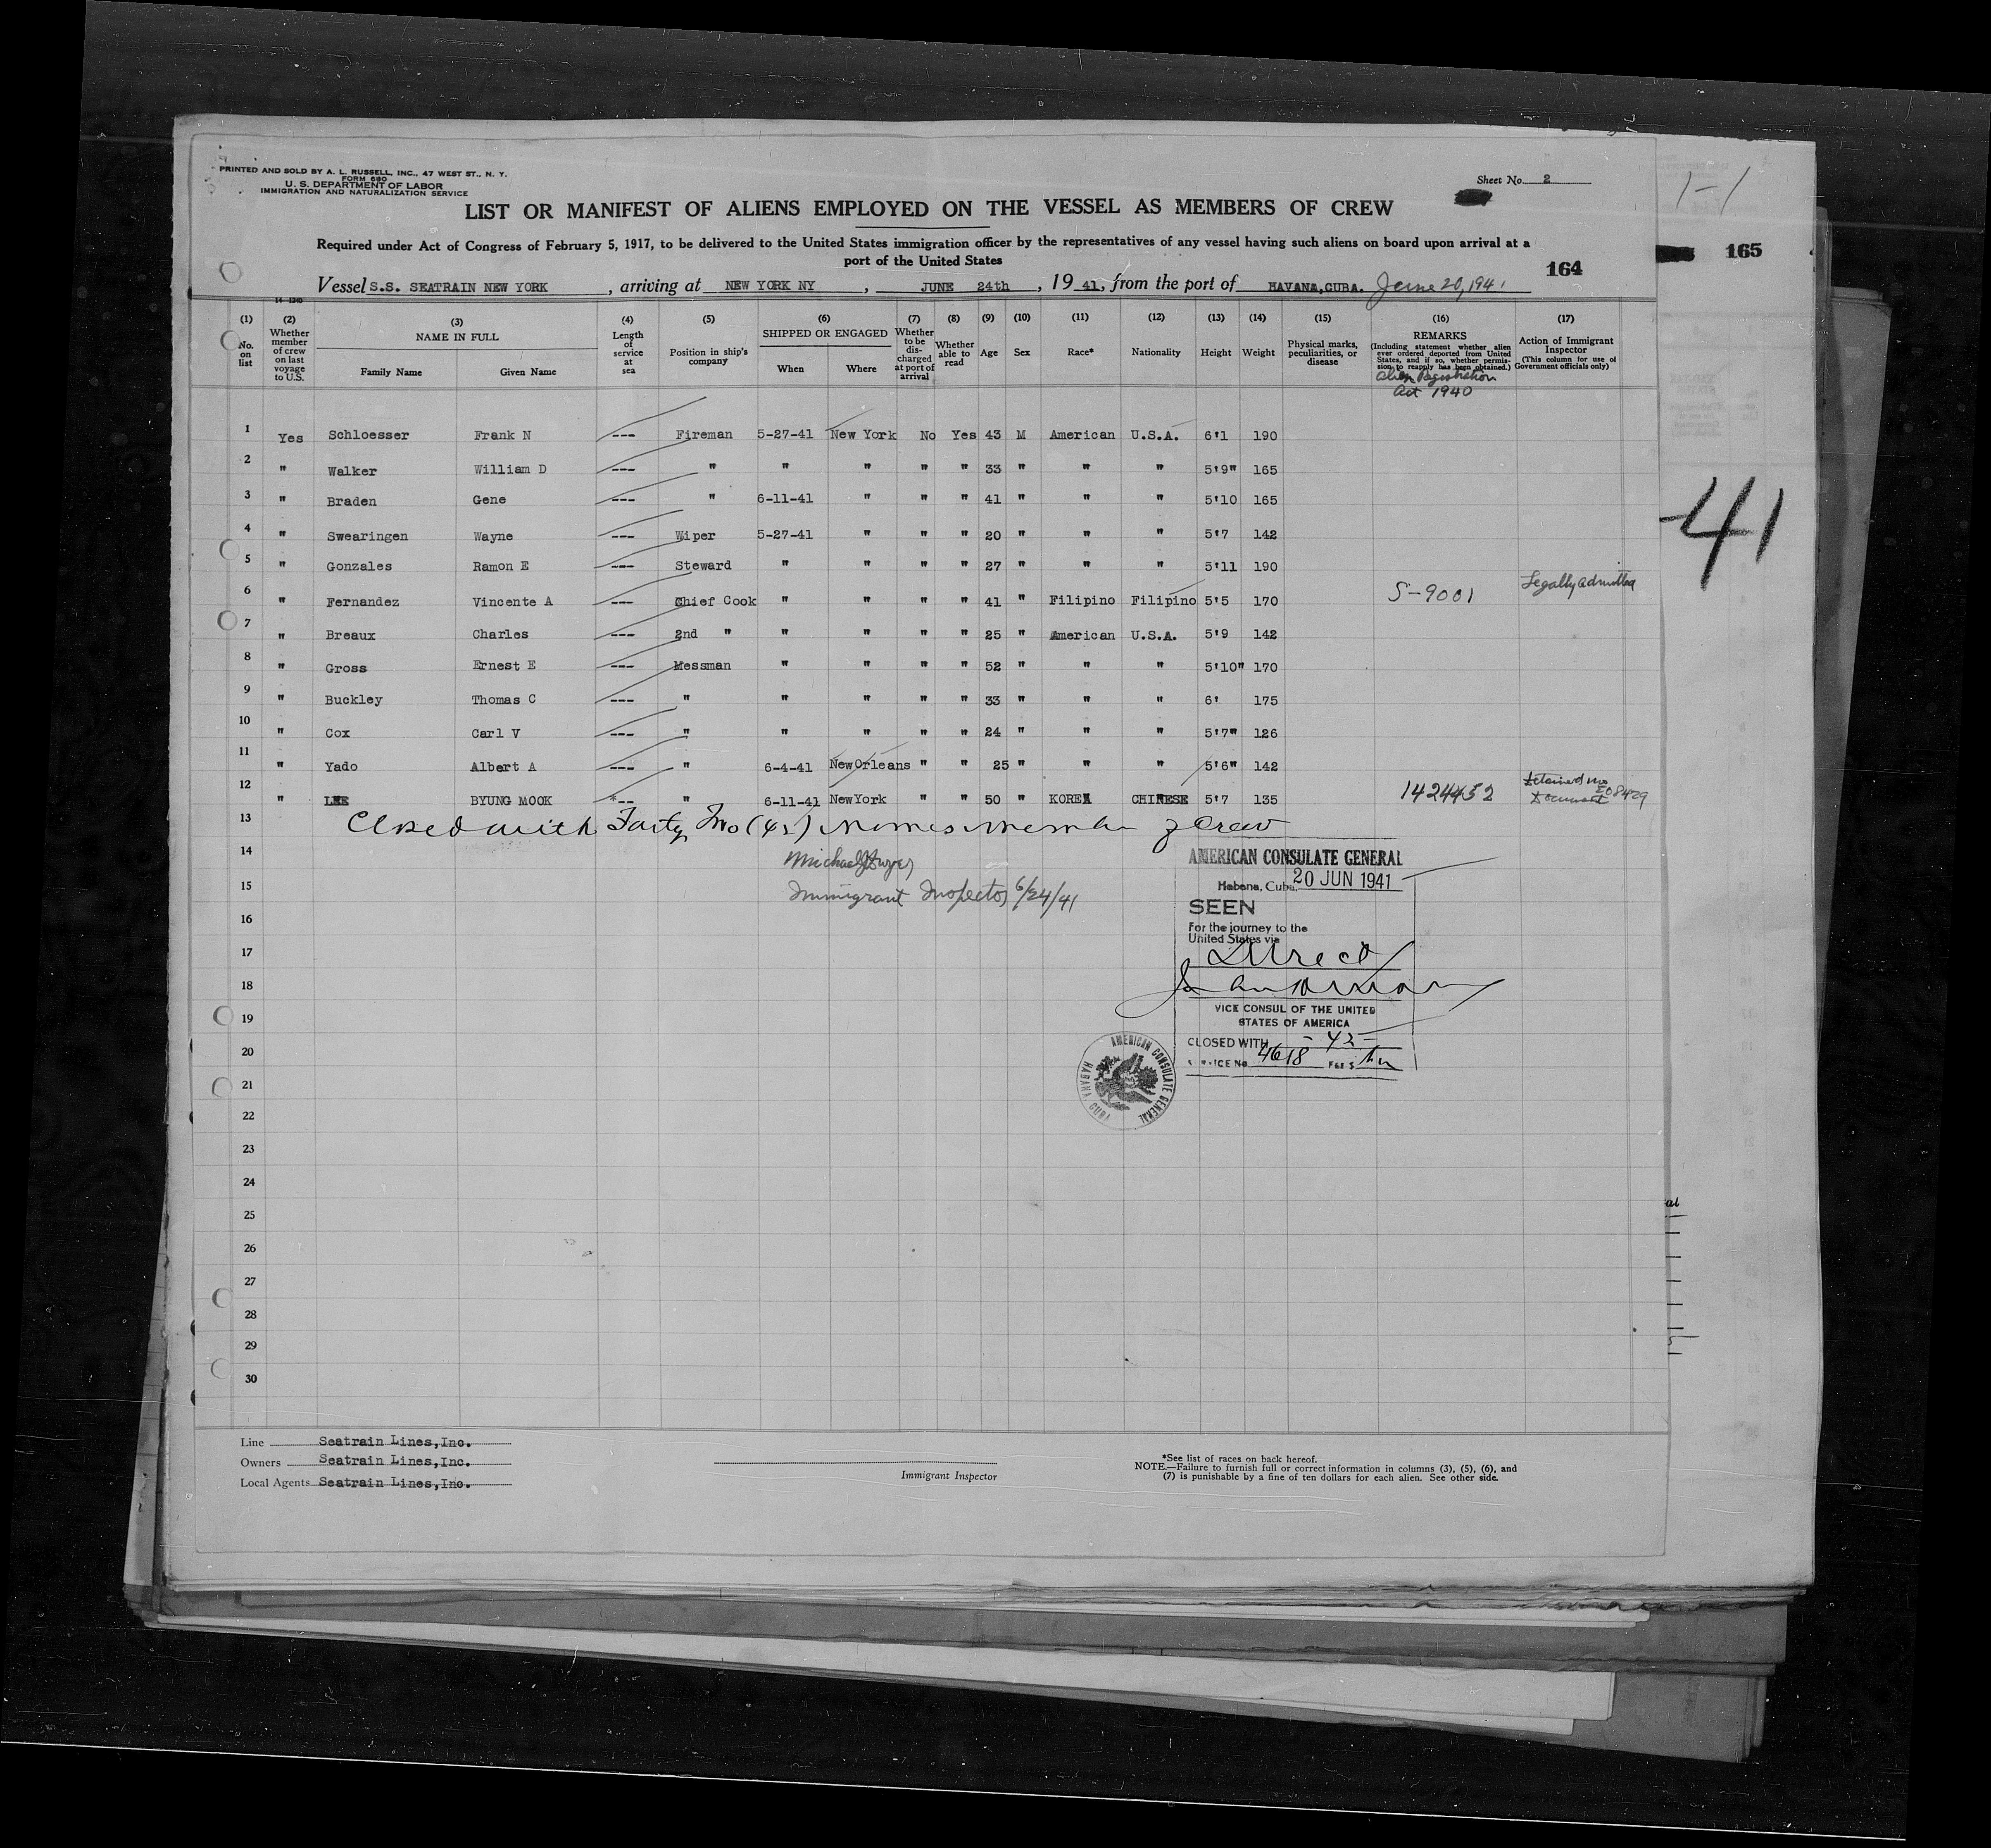 PRINTED AND SOLD BY A. L. RUSSELL, INC., 47 WEST ST., N. Y.
FORM 680
U. S. DEPARTMENT OF LABOR
IMMIGRATION AND NATURALIZATION SERVICE
Sheet No. 2
1-1
LIST OR MANIFEST OF ALIENS EMPLOYED ON THE VESSEL AS MEMBERS OF CREW
Required under Act of Congress of February 5, 1917, to be delivered to the United States immigration officer by the representatives of any vessel having such aliens on board upon arrival at a
port of the United States
164
165
Vessel S.S. SEATRAIN NEW YORK, arriving at NEW YORK NY, JUNE 24th, 19 41, from the port of HAVANA,CUBA. June 20, 1941
(1) No. on list
(2) Whether member of crew on last voyage to U.S.
(3) NAME IN FULL
Family Name Given Name
(4) Length of service at sea
(5) Position in ship's company
(6) SHIPPED OR ENGAGED
When Where
(7) Whether to be discharged at port of arrival
(8) Whether able to read
(9) Age
(10) Sex
(11) Race*
(12) Nationality
(13) Height
(14) Weight
(15) Physical marks, peculiarities, or disease
(16) REMARKS
(Including statement whether alien ever ordered deported from United States, and if so, whether permission to reapply has been obtained.)
Alien Registration
Act 1940
(17) Action of Immigrant Inspector
(This column for use of Government officials only)
1 Yes Schloesser Frank N --- Fireman 5-27-41 New York No Yes 43 M American U.S.A. 6'1 190
2 " Walker William D --- " " " " " 33 " " " 5'9" 165
3 " Braden Gene --- " 6-11-41 " " " 41 " " " 5'10 165
4 " Swearingen Wayne --- Wiper 5-27-41 " " " 20 " " " 5'7 142
5 " Gonzales Ramon E --- Steward " " " " 27 " " " 5'11 190
6 " Fernandez Vincente A --- Chief Cook " " " " 41 " Filipino Filipino 5'5 170 S-9001 Legally admitted
7 " Breaux Charles --- 2nd " " " " " 25 " American U.S.A. 5'9 142
8 " Gross Ernest E --- Messman " " " " 52 " " " 5'10" 170
9 " Buckley Thomas C --- " " " " " 33 " " " 6' 175
10 " Cox Carl V --- " " " " " 24 " " " 5'7" 126
11 " Yado Albert A --- " 6-4-41 New Orleans " " 25 " " " 5'6" 142
12 " LEE BYUNG MOOK *-- " 6-11-41 NewYork " " 50 " KOREA CHINESE 5'7 135 1424452 Detained no Document E08429
13 Closed with Forty Two (42) names member of crew
14
15
16
17
18
19
20
21
22
23
24
25
26
27
28
29
30
Michael Dwyer
Immigrant Inspector 6/24/41
AMERICAN CONSULATE GENERAL
Habana, Cuba. 20 JUN 1941
SEEN
For the journey to the
United States via
Direct
VICE CONSUL OF THE UNITED
STATES OF AMERICA
CLOSED WITH - 42 -
SERVICE No. 4618 FEE $
AMERICAN CONSULATE GENERAL
HABANA, CUBA
41
Line Seatrain Lines,Inc.
Owners Seatrain Lines,Inc.
Local Agents Seatrain Lines,Inc.
Immigrant Inspector
*See list of races on back hereof.
NOTE.—Failure to furnish full or correct information in columns (3), (5), (6), and
(7) is punishable by a fine of ten dollars for each alien. See other side.